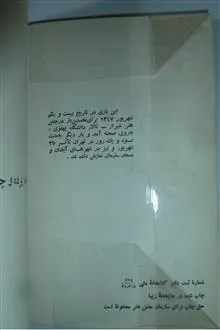 این بازی در تاریخ بیست و یکم
شهریور ۱۳۴۷ برای نخستین بار درجشن
هنر شیراز - تالار دانشگاه پهلوی ،
بروی صحنه آمد و بار دیگر بمدت
نود و یک روز در تهران تآتر ۲۵
شهریور و نیز در شهرهای آبادان و
مسجد سلیمان نمایش داده شد .
شماره ثبت دفتر کتابخانه ملی
چاپ شده در چاپخانه زیبا
حق چاپ برای سازمان جشن هنر محفوظ است